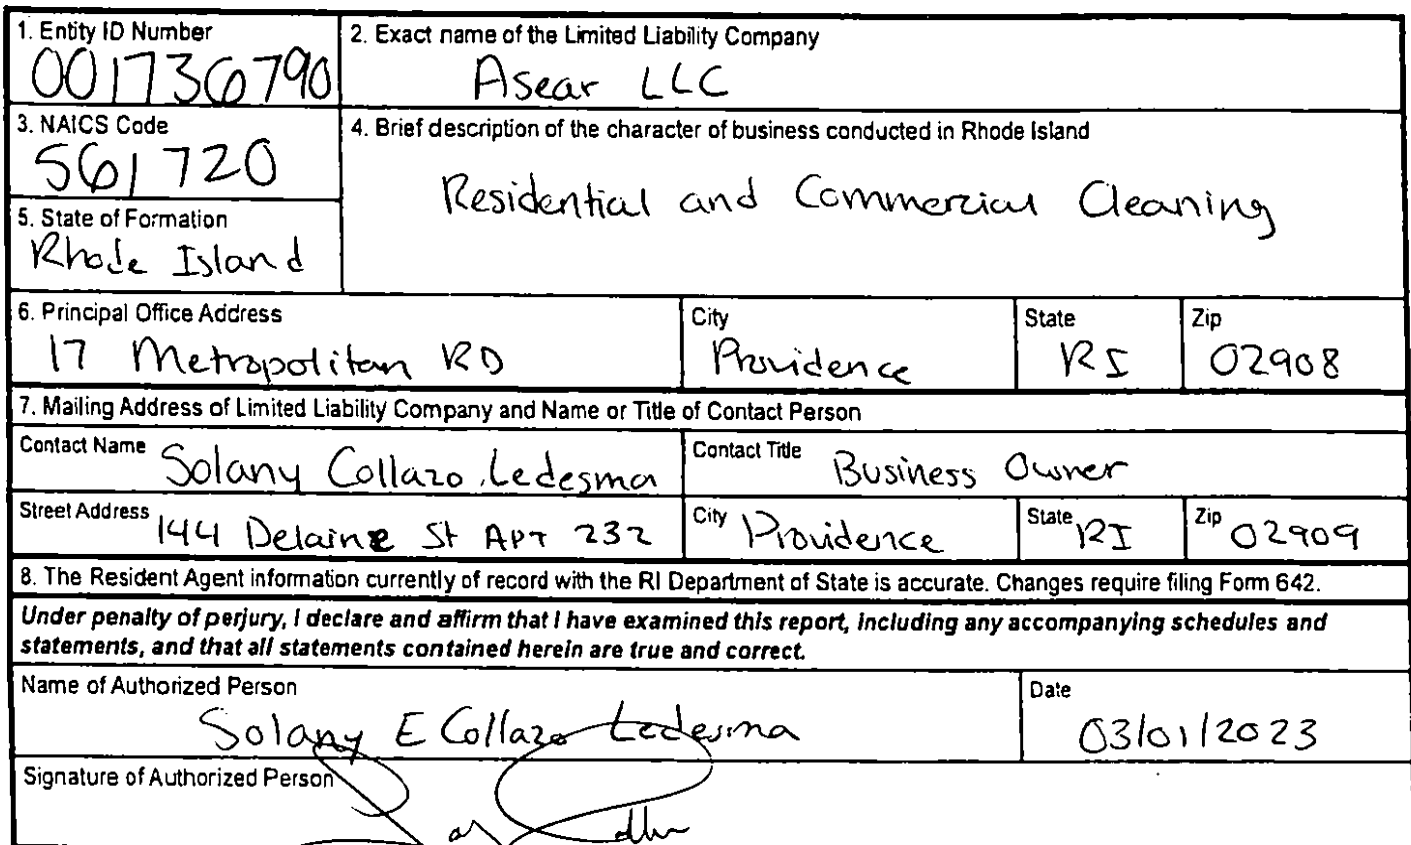 1. Entity ID Number
001736790
2. Exact name of the Limited Liability Company
Asear LLC
3. NAICS Code
561720
4. Brief description of the character of business conducted in Rhode Island
Residential and Commercial Cleaning
5. State of Formation
Rhode Island
6. Principal Office Address
17 Metropolitan RD
City
Providence
State
RI
Zip
02908
7. Mailing Address of Limited Liability Company and Name or Title of Contact Person
Contact Name Solany Collazo Ledesma
Contact Title Business Owner
Street Address 144 Delaine St APT 232
City Providence
State RI
Zip 02909
8. The Resident Agent information currently of record with the RI Department of State is accurate. Changes require filing Form 642.
Under penalty of perjury, I declare and affirm that I have examined this report, including any accompanying schedules and
statements, and that all statements contained herein are true and correct.
Name of Authorized Person
Solany E Collazo Ledesma
Date
03/01/2023
Signature of Authorized Person